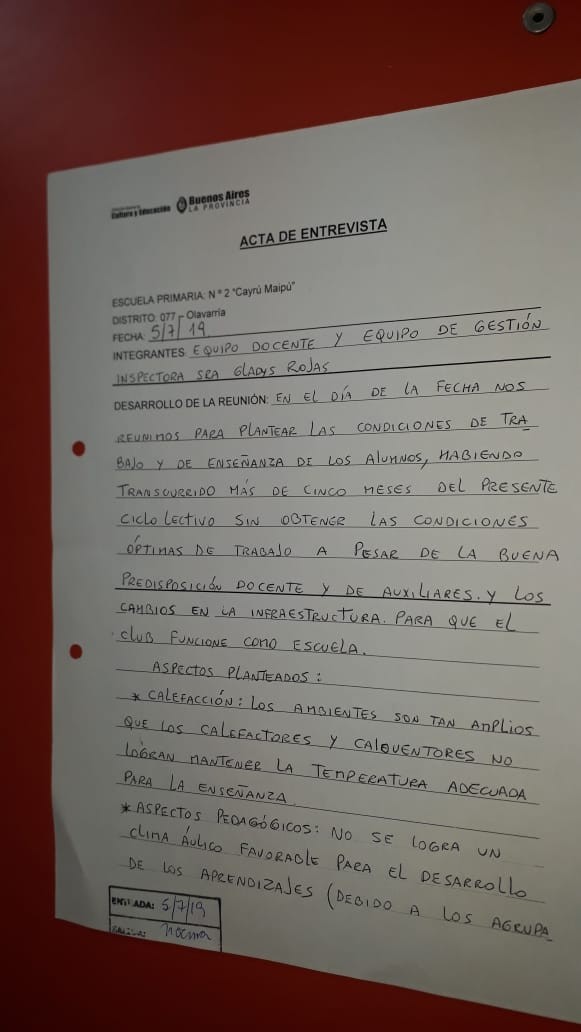 Cultura y Educación
Buenos Aires
LA PROVINCIA
ACTA DE ENTREVISTA
ESCUELA PRIMARIA: N º 2 "Cayrú Maipú"
DISTRITO: 077 - Olavarría
FECHA: 5/7/19
INTEGRANTES: EQUIPO DOCENTE Y EQUIPO DE GESTIÓN
INSPECTORA SRA GLADYS ROJAS
DESARROLLO DE LA REUNIÓN: EN EL DÍA DE LA FECHA NOS
REUNIMOS PARA PLANTEAR LAS CONDICIONES DE TRA
BAJO Y DE ENSEÑANZA DE LOS ALUMNOS, HABIENDO
TRANSCURRIDO MÁS DE CINCO MESES DEL PRESENTE
CICLO LECTIVO SIN OBTENER LAS CONDICIONES
ÓPTIMAS DE TRABAJO A PESAR DE LA BUENA
PREDISPOSICIÓN DOCENTE Y DE AUXILIARES. Y LOS
CAMBIOS EN LA INFRAESTRUCTURA. PARA QUE EL
CLUB FUNCIONE COMO ESCUELA.
ASPECTOS PLANTEADOS:
* CALEFACCIÓN: LOS AMBIENTES SON TAN AMPLIOS
QUE LOS CALEFACTORES Y CALOVENTORES NO
LOGRAN MANTENER LA TEMPERATURA ADECUADA
PARA LA ENSEÑANZA
* ASPECTOS PEDAGÓGICOS: NO SE LOGRA UN
CLIMA ÁULICO FAVORABLE PARA EL DESARROLLO
DE LOS APRENDIZAJES (DEBIDO A LOS AGRUPA
ENTRADA: 5/7/19